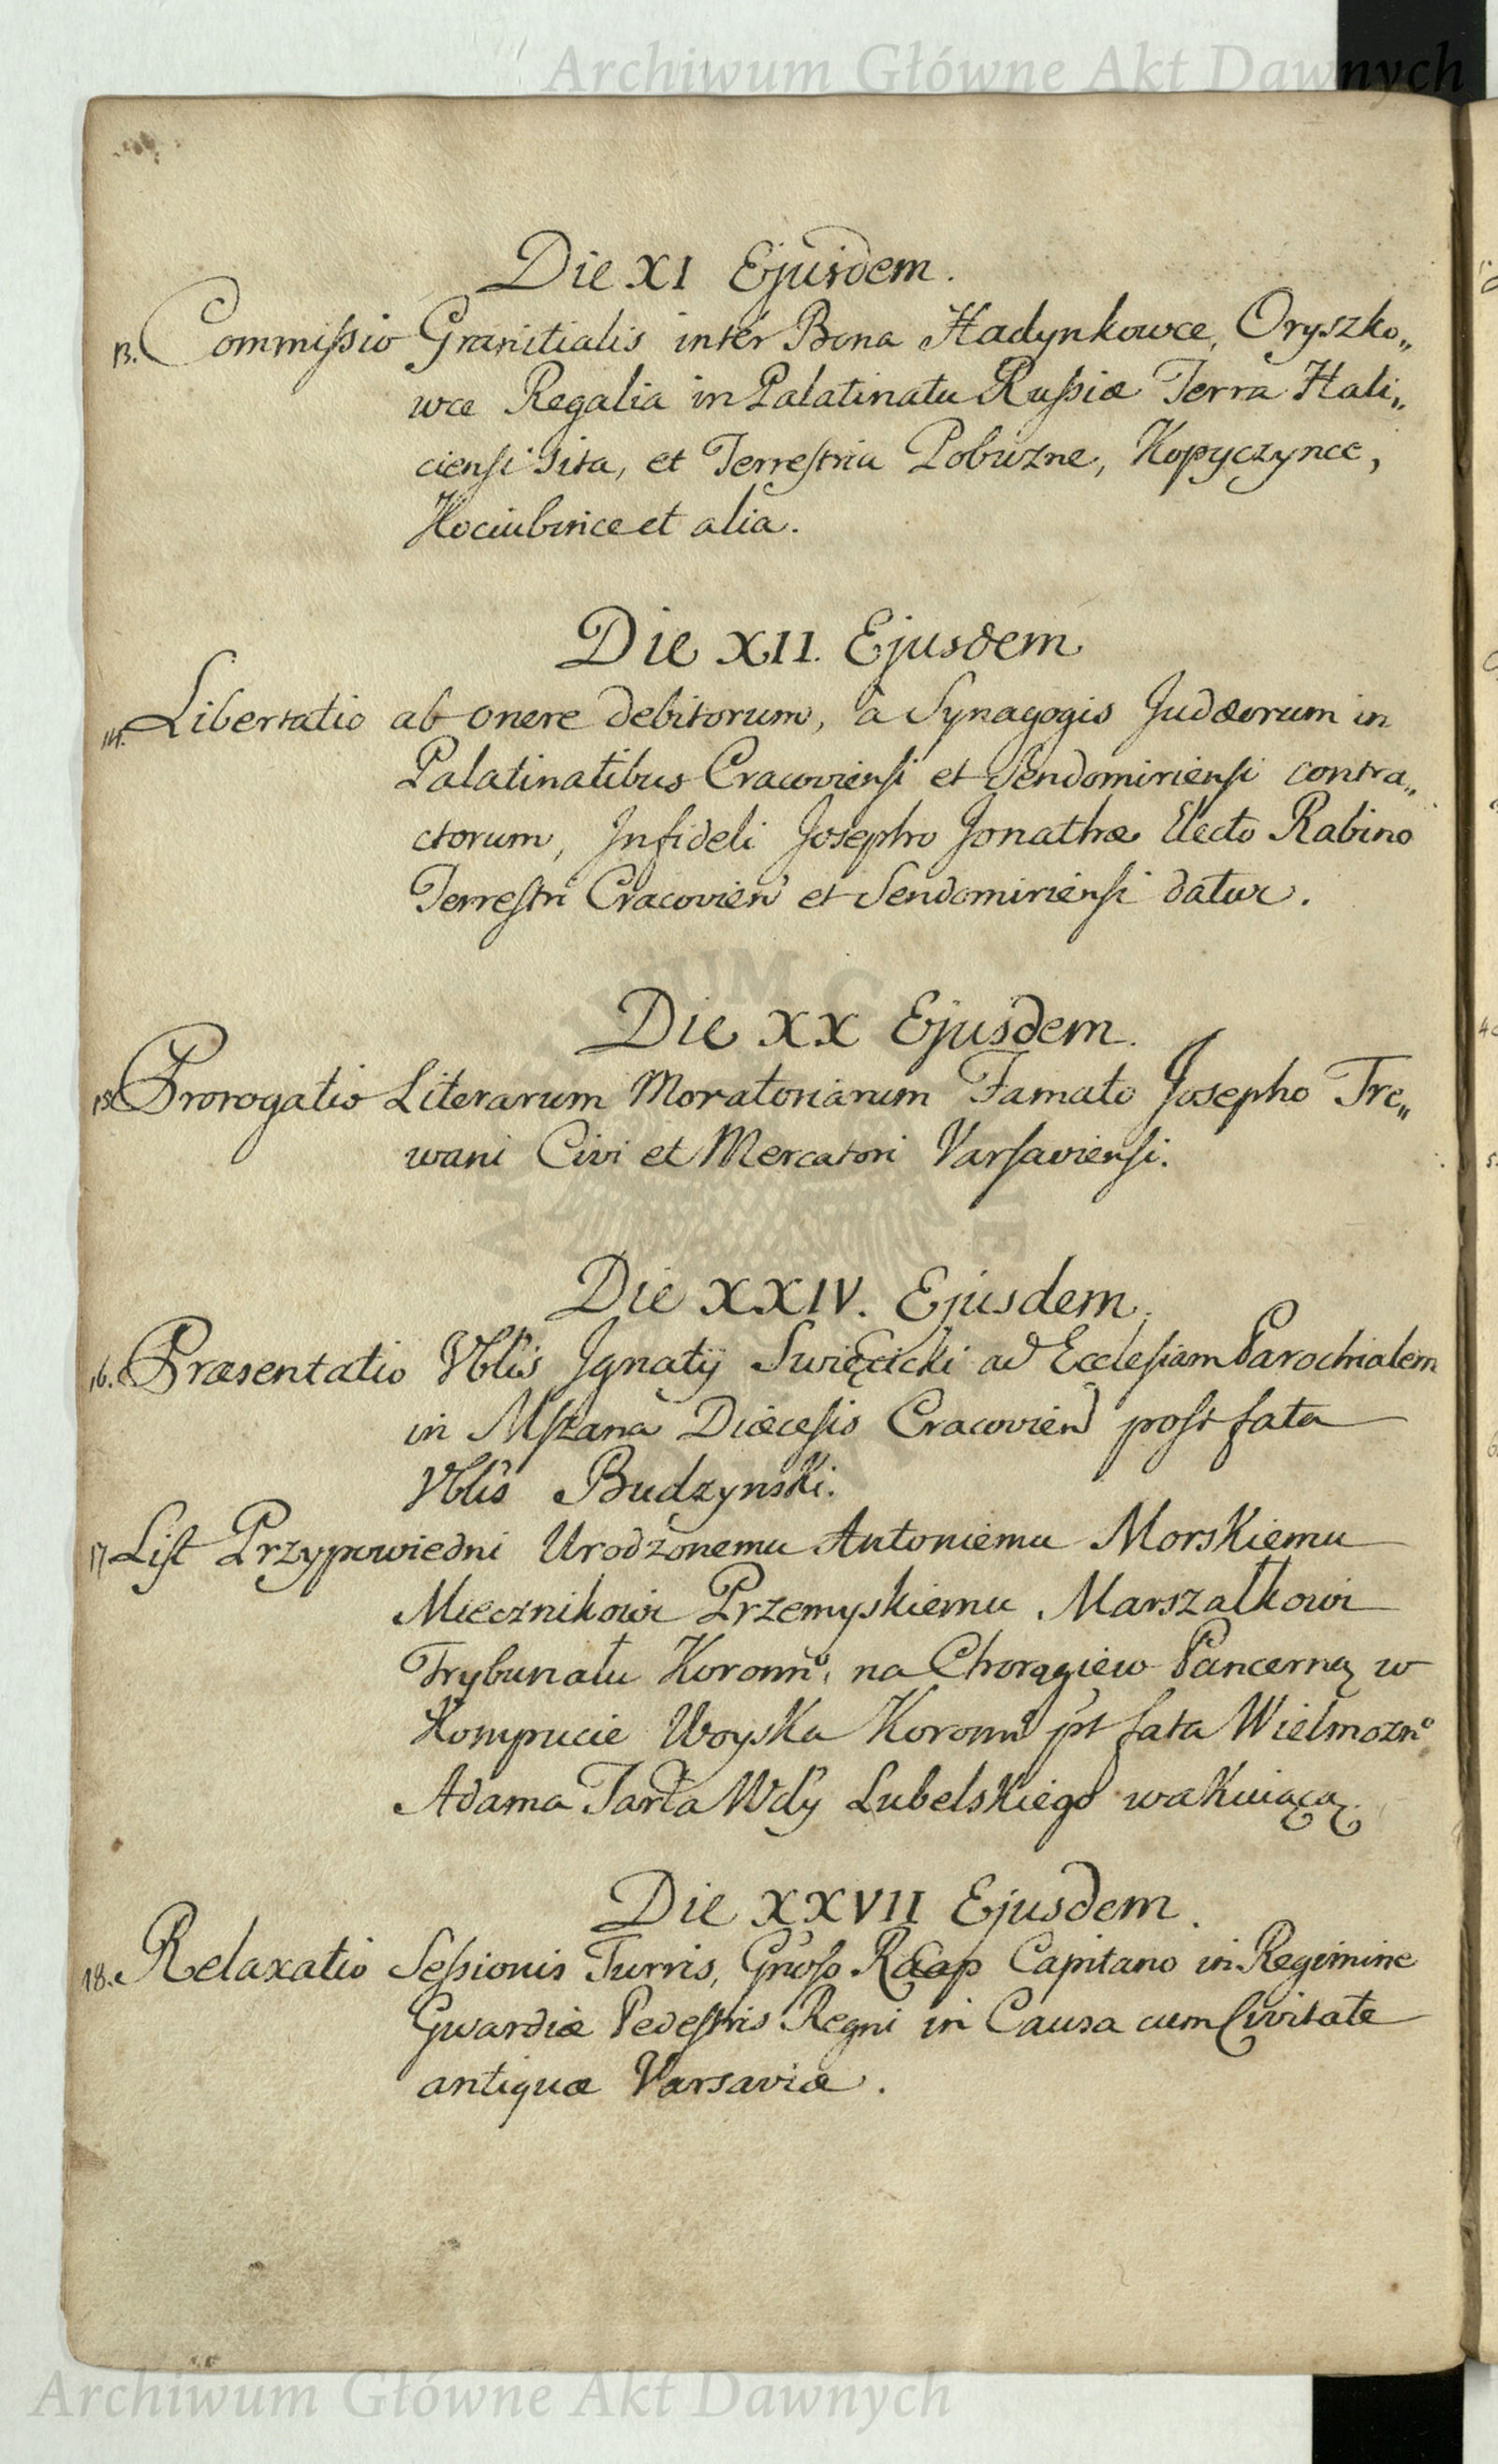 Archiwum Główne Akt Dawnych
Die XI Ejusdem.
13. Commissio Granitialis inter Bona Hadynkowce, Oryszko„
wce Regalia in Palatinatu Russiæ Terra Hali„
ciensi sita, et Terrestria Pobuzne, Kopyczynce,
Kociubince et alia.
Die XII. Ejusdem
14. Libertatio ab onere debitorum, a Synagogis Judæorum in
Palatinatibus Cracoviensi et Sendomiriensi contra„
ctorum, Infideli Josepho Jonathæ Electo Rabino
Terrestri Cracovien et Sendomiriensi datur.
Die XX Ejusdem.
15. Prorogatio Literarum Moratoriarum Famato Josepho Tre„
wani Civi et Mercatori Varsaviensi.
Die XXIV. Ejusdem.
16. Præsentatio Vblis Ignatij Swięcicki ad Ecclesiam Parochialem
in Mszana Diæcesis Cracovien post fata
Vblis Budzynski.
17. List Przypowiedni Urodzonemu Antoniemu Morskiemu
Miecznikowi Przemyskiemu Marszałkowi
Trybunału Koronno, na Chorągiew Pancerną w
Kompucie Woyska Koronno pt fata Wielmozno
Adama Tarła Wdy Lubelskiego wakuiącą.
Die XXVII Ejusdem.
18. Relaxatio Sessionis Turris, Gnoso Raap Capitano in Regimine
Gwardiæ Pedestris Regni in Causa cum Civitate
antiquæ Varsaviæ.
Archiwum Główne Akt Dawnych